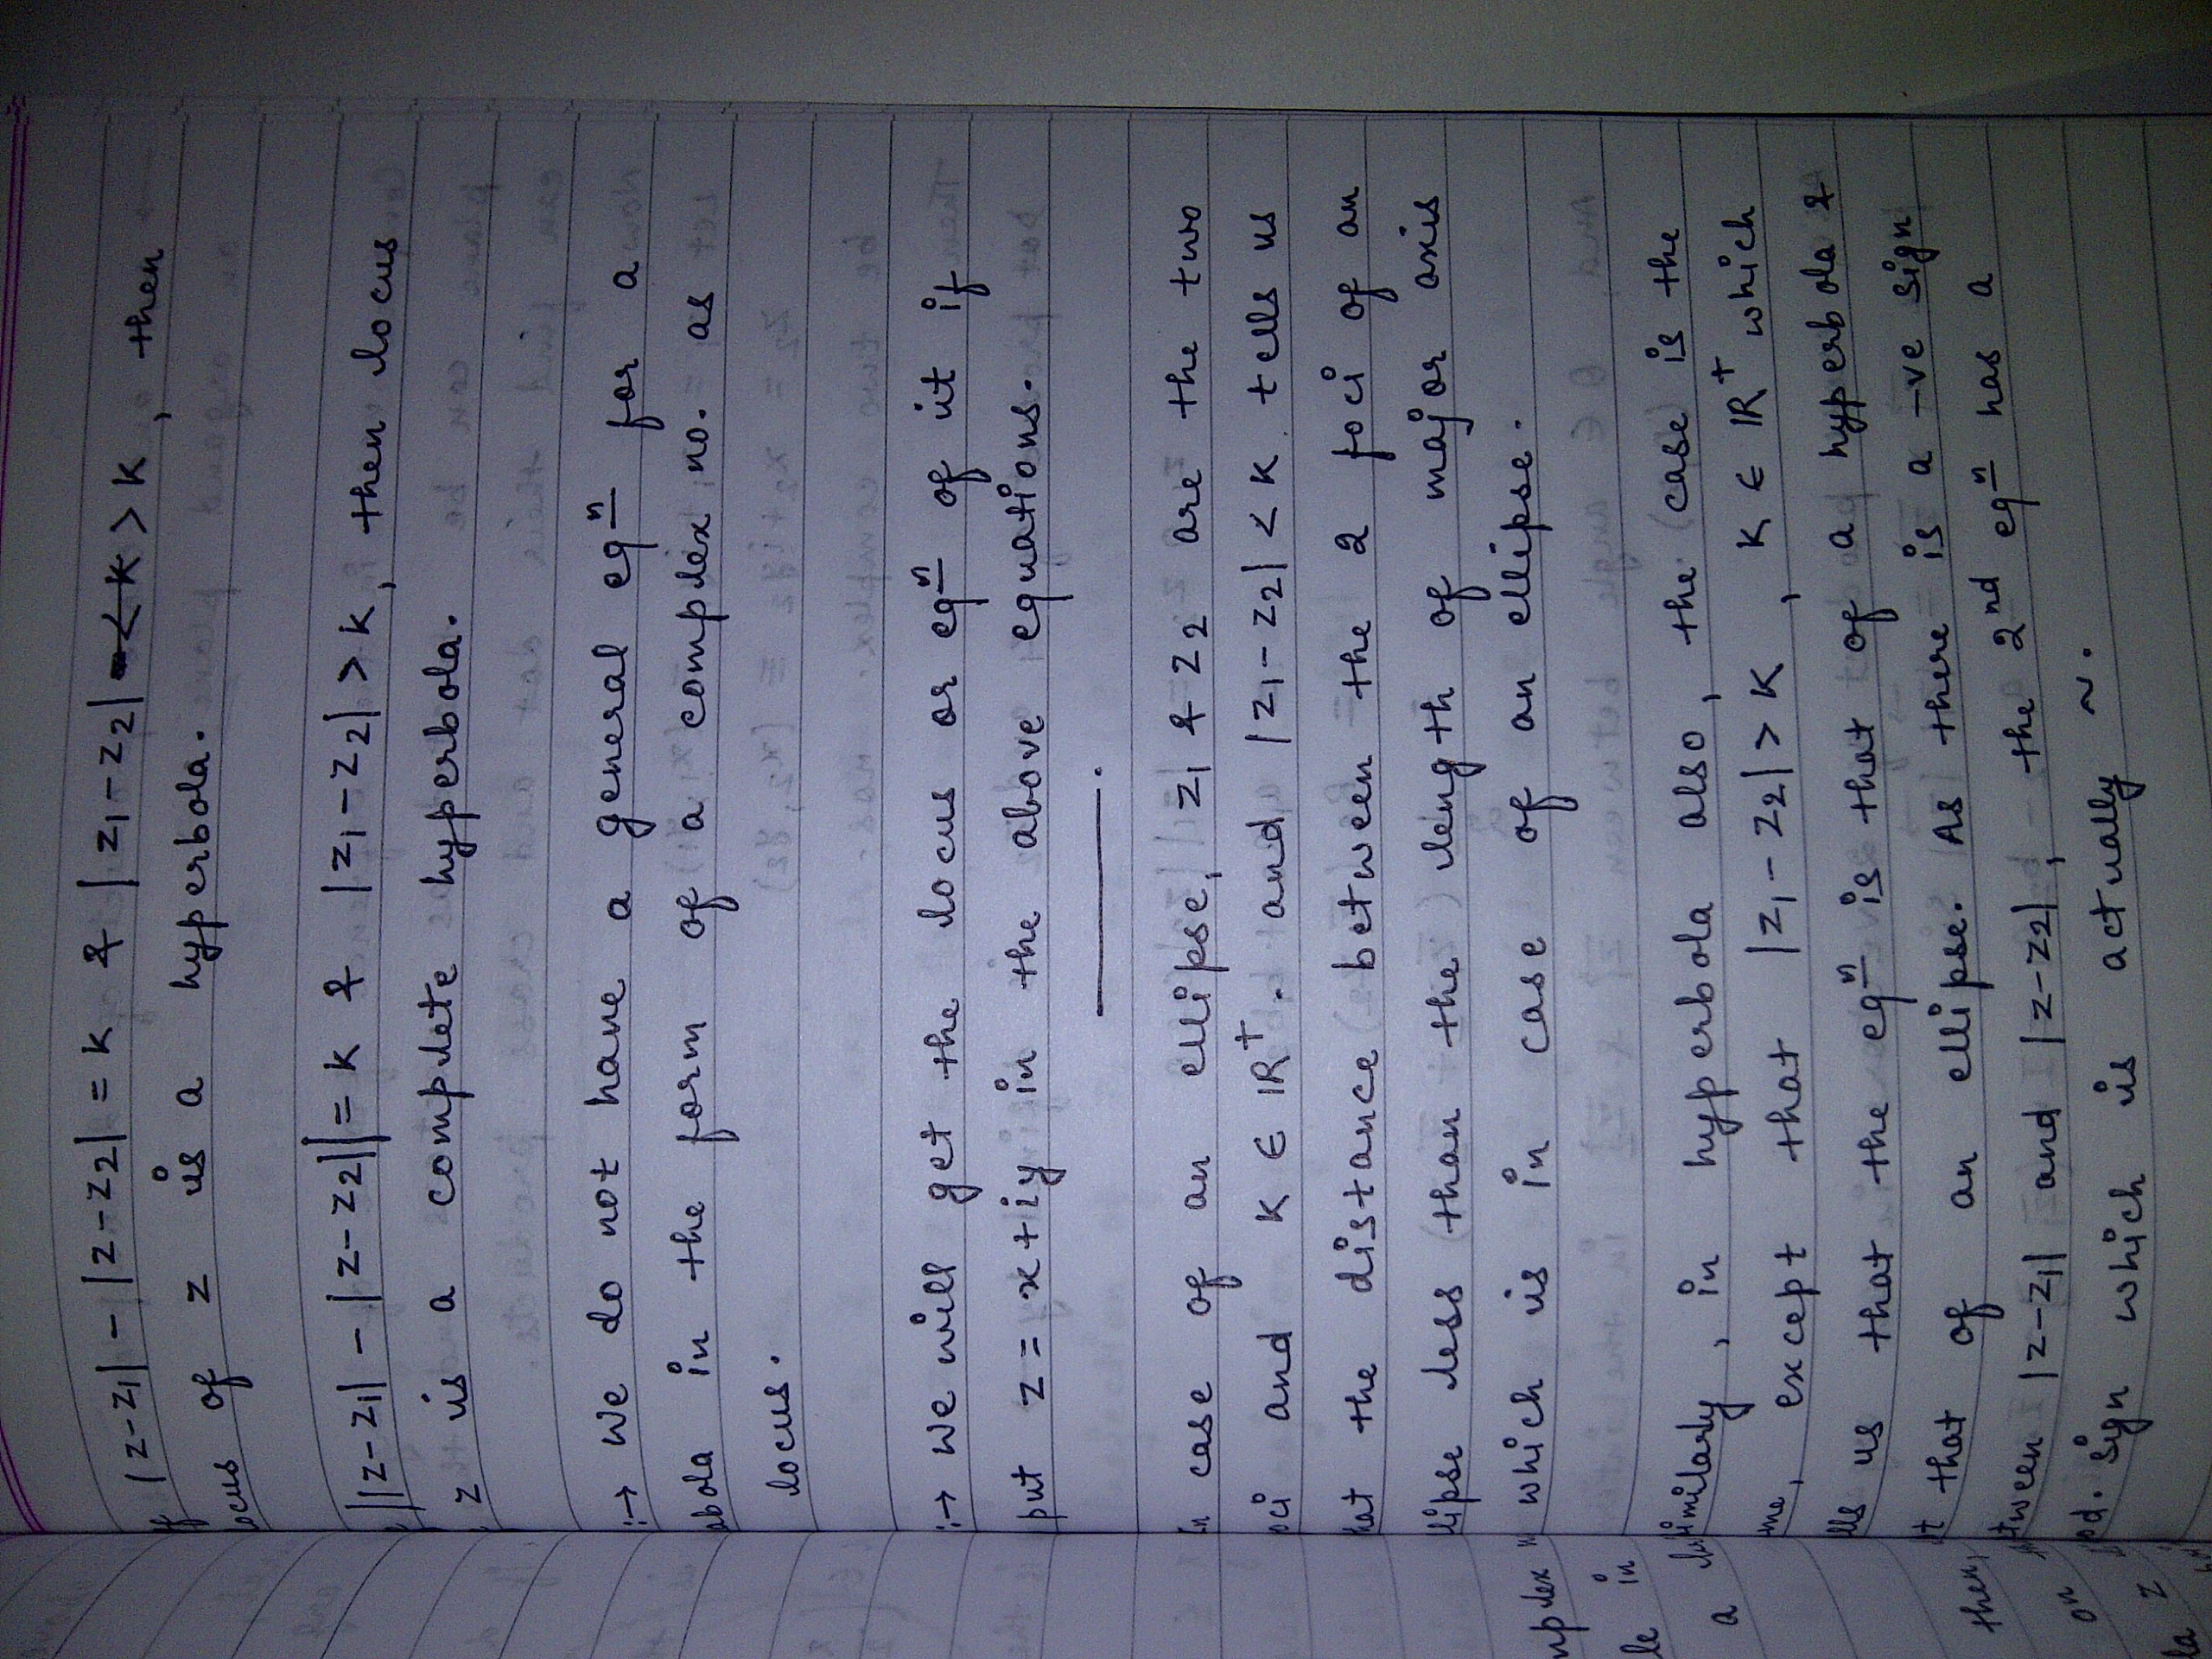 f |z-z₁| - |z-z₂| = k & |z₁-z₂| > k, then
ocus of z is a hyperbola.
||z-z₁| - |z-z₂|| = k & |z₁-z₂| > k, then locus
z is a complete hyperbola.
:→ We do not have a general eqⁿ for a
abola in the form of a complex no. as
locus.
:→ We will get the locus or eqⁿ of it if
put z = x+iy in the above equations.
In case of an ellipse, z₁ & z₂ are the two
oci and k ∈ IR⁺. and |z₁-z₂| < k tells us
hat the distance between the 2 foci of an
llipse less than the length of major axis
which is in case of an ellipse.
imilarly, in hyperbola also, the case is the
me, except that |z₁-z₂| > k, k ∈ IR⁺ which
lls us that the eqⁿ is that of a hyperbola &
t that of an ellipse. As there is a -ve sign
tween |z-z₁| and |z-z₂|, the 2nd eqⁿ has a
od. sign which is actually ~.
mplex
le in
a
then,
on
la z